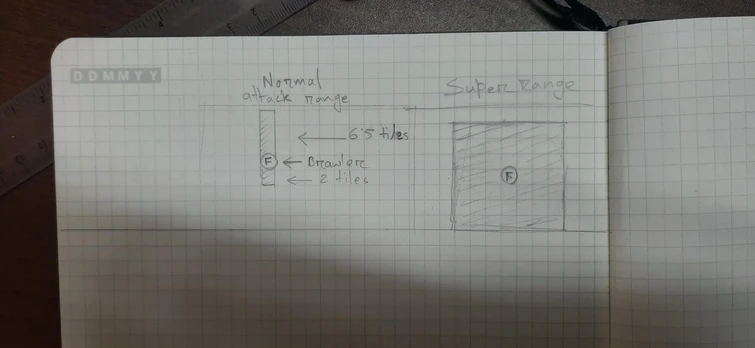 DDMMYY
Normal
attack range
6.5 tiles
F
Brawler
2 tiles
Super Range
F